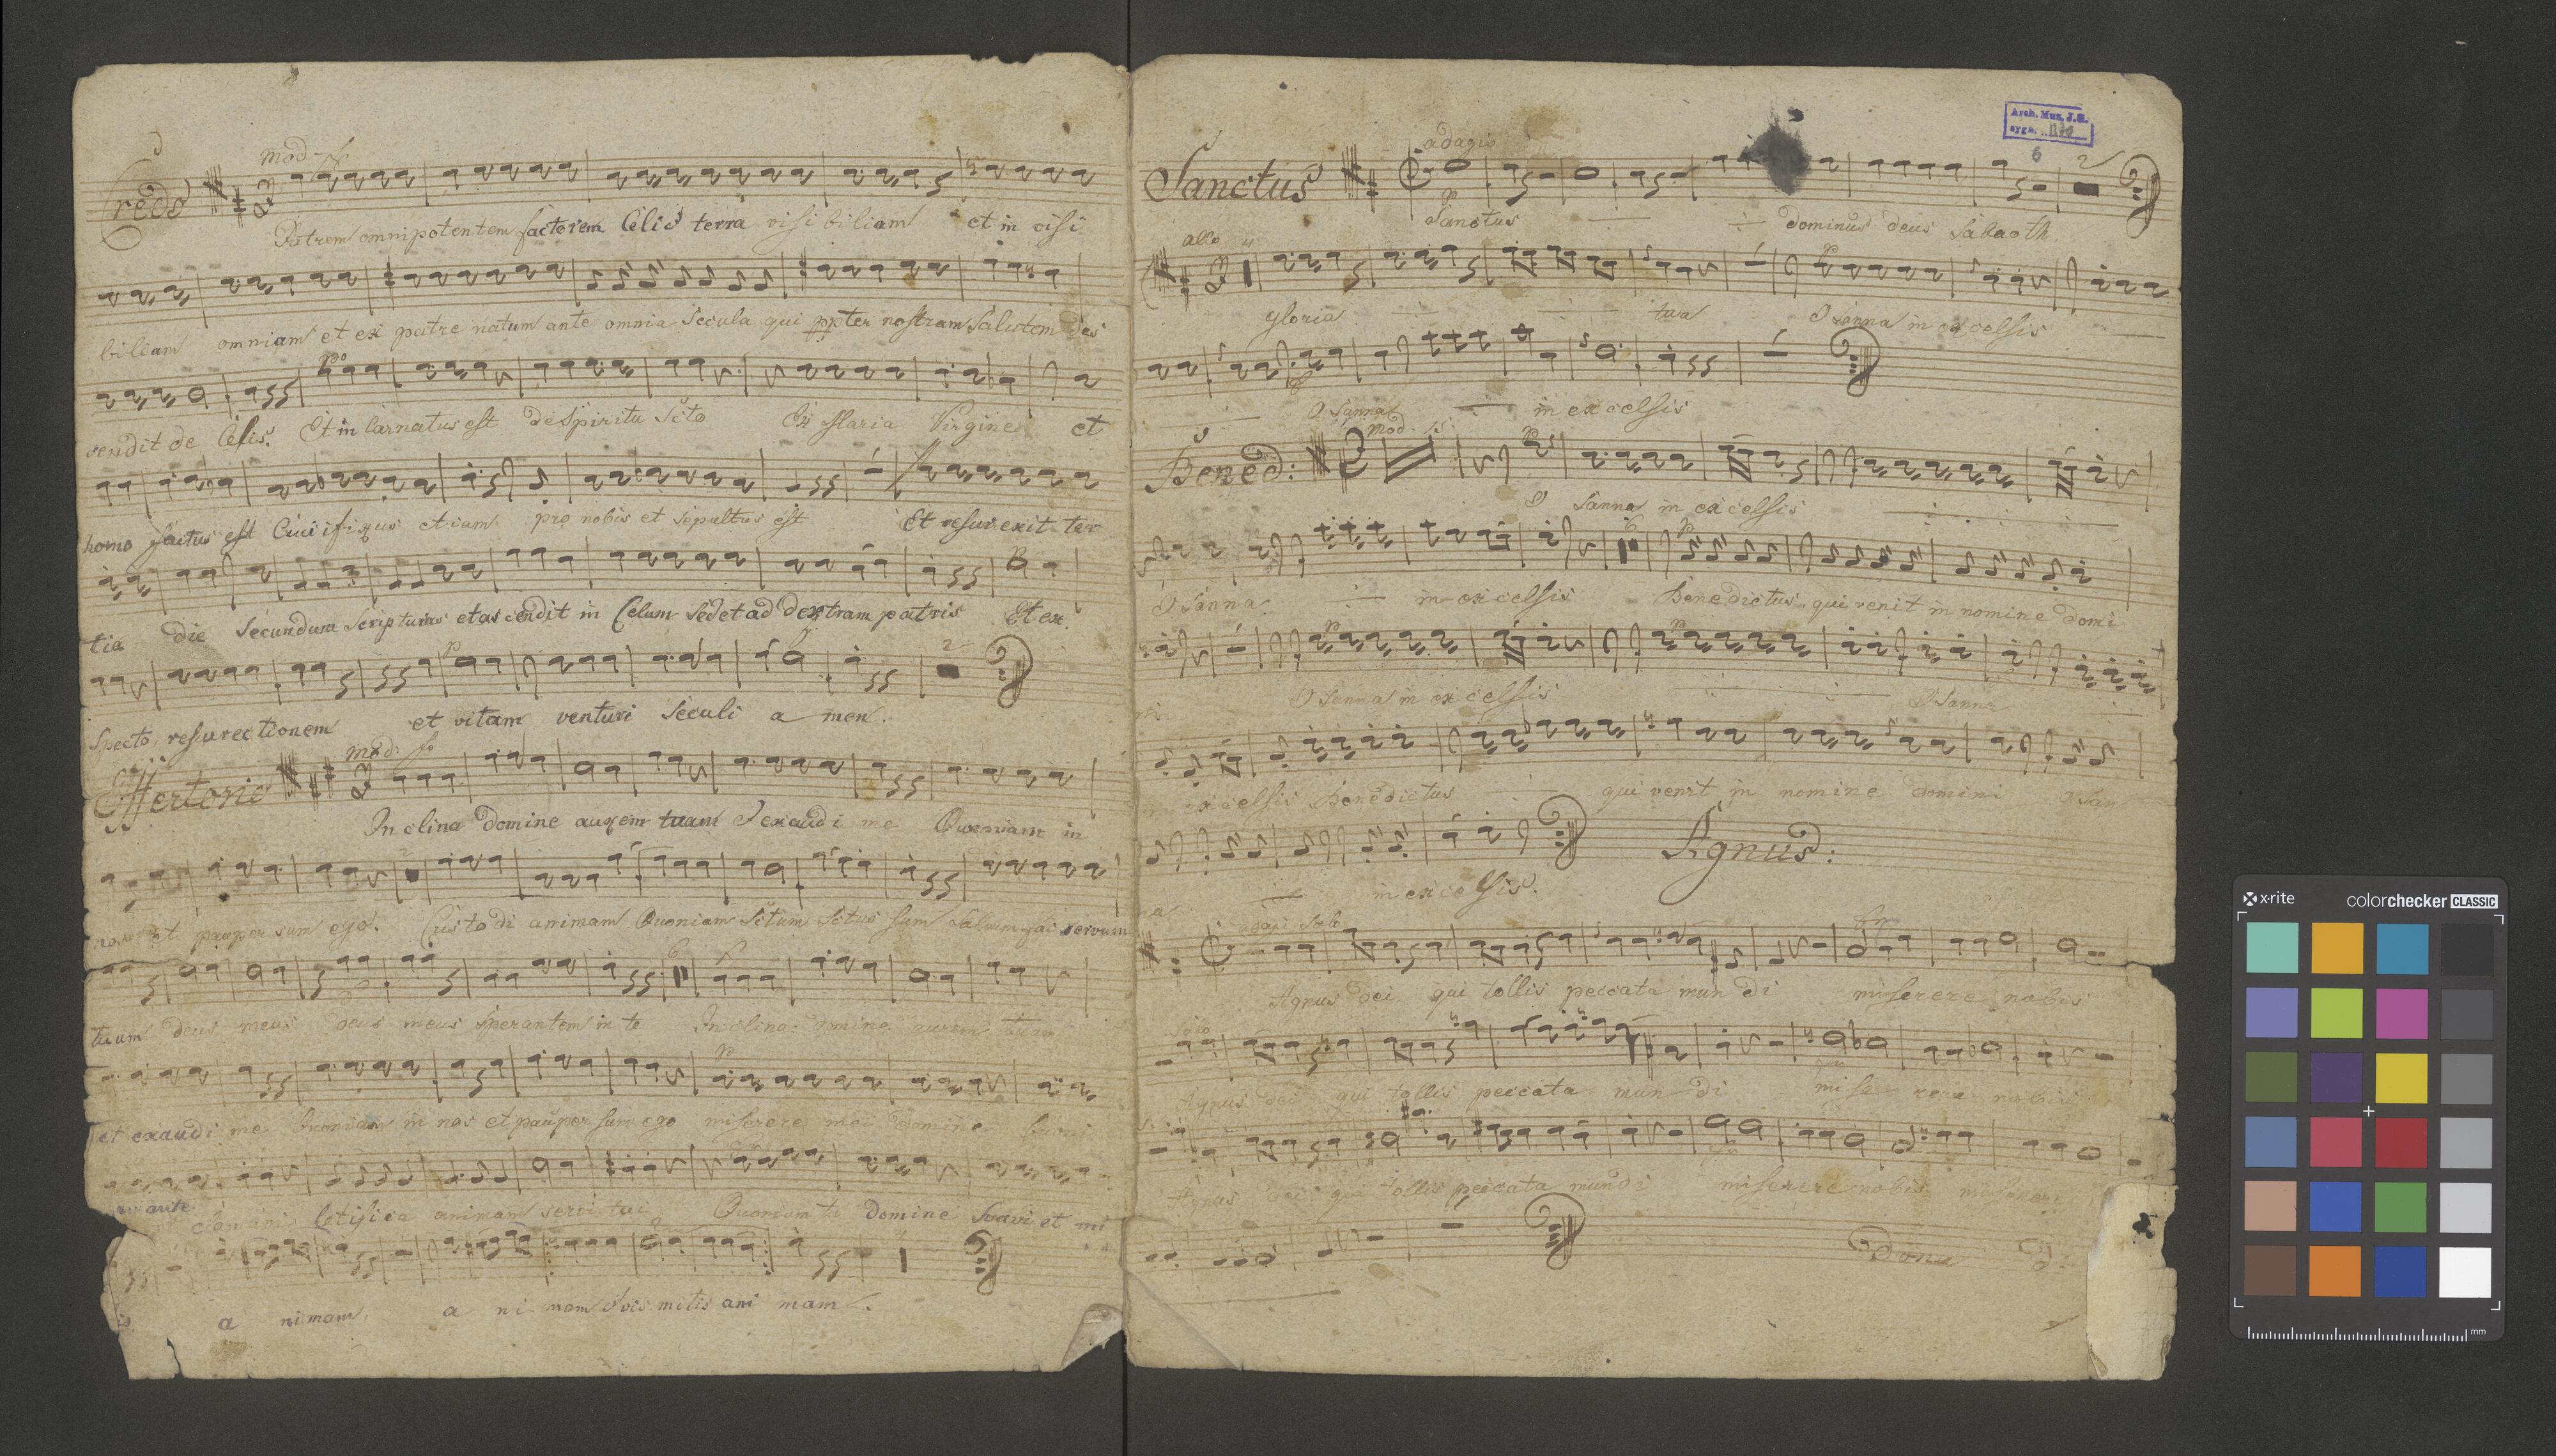 Credo
mod:
Patrem omnipotentem factorem Celi et terra visi biliam et in visi
biliam omniam et ex patre natum ante omnia secula qui ppter nostram salutem des
pº
cendit de Celis. Et in Carnatus est de Spiritu Scto Ex Maria Virgine et
homo factus est Cuci fixus etiam pro nobis et sepultus est Et resur exit ter
tia die secundum scripturas et as cendit in Celum sedet ad dextram patris Et ex
p 2
specto resurectionem et vitam venturi seculi a men.
Offertorio
mod: fo
In clina domine aurem tuam et exaudi me Quoniam in
et pauper sum ego. Custo di animam Quoniam Sctum Sctus sum salvum fac servum
6 f
tuum deus meus deus meus sperantem in te In clina domine aurem tuam
p
et exaudi me Quoniam in nos et pauper sum ego miserere mei domine
letifica animam servi tui Quoniam tu domine suavi et mi
is a nimam, a ni mam ovis mitis ani mam.
Arch. Muz. J.G.
sygn.
6
Sanctus
adagio
p 2
Sanctus dominus deus Sabaoth
allo 4 p
gloria tua O sanna in excelsis
f
O Sanna in excelsis
Bened:
mod. 15 p
O Sanna in excelsis
6 p
O Sanna in excelsis Benedictus qui venit in nomine domi
p p
ni O Sanna in excelsis O Sanna
in excelsis Benedictus qui venit in nomine domini O San
Agnus:
na in excelsis.
adagi Solo
Agnus dei qui tollis peccata mun di miserere nobis
Solo
Agnus dei qui tollis peccata mun di mise rere nobis
Agnus dei qui tollis peccata mundi miserere nobis miserere
Dona
x-rite colorchecker CLASSIC
mm